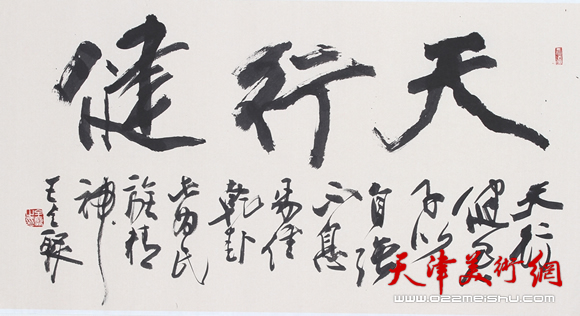 天行健
天行
健君
子以
自强
不息
乾卦
为民
族精
神
王
天津美術網
www.022meishu.com